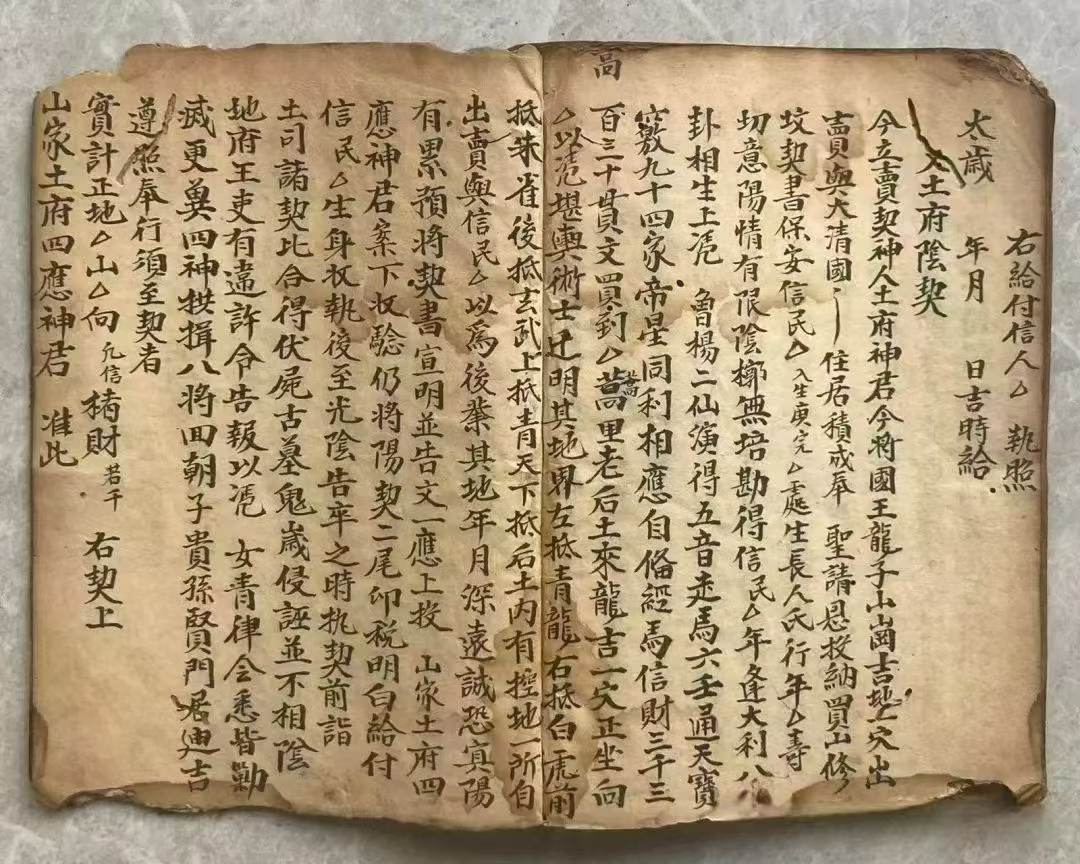 右給付信人厶 執照
太歲 年月 日吉時給
又土府陰契
今立賣契神人土府神君今将國王龍子山崗吉地一穴出
賣與大清國 住居積成奉 聖請恩投納買山修
坟契書保安信民厶入生庚完厶處生長人氏行年厶壽
切意陽情有限陰槨無培勘得信民厶年逢大利八
卦相生上凴 魯楊二仙演得五音走馬六壬通天寶
籔九十四家帝星同利相應自俻經馬信財三千三
百三十貫文買到厶蒿里老后土來龍吉一穴正坐向
高
嵩
厶以凴堪輿術士迁明其地界左抵青龍右抵白虎前
抵朱雀後抵玄武上抵青天下抵后土内有控地一所自
出賣與信民厶以爲後業其地年月深遠誠恐真陽
有累預將契書宣明並告文一應上投 山家土府四
應神君案下收騐仍將陽契二尾印税明白給付
信民厶生身收執後至光陰告卒之時执契前詣
土司諸契比合得伏屍古墓鬼歲侵誣並不相陰
地府王吏有違許令告報以凴 女青律令悉皆勦
滅更兾四神拱揖八將回朝子貴孫賢門居廸吉
遵照奉行須至契者
實計正地厶山厶向凢信楮財若干 右契上
山家土府四應神君 准此